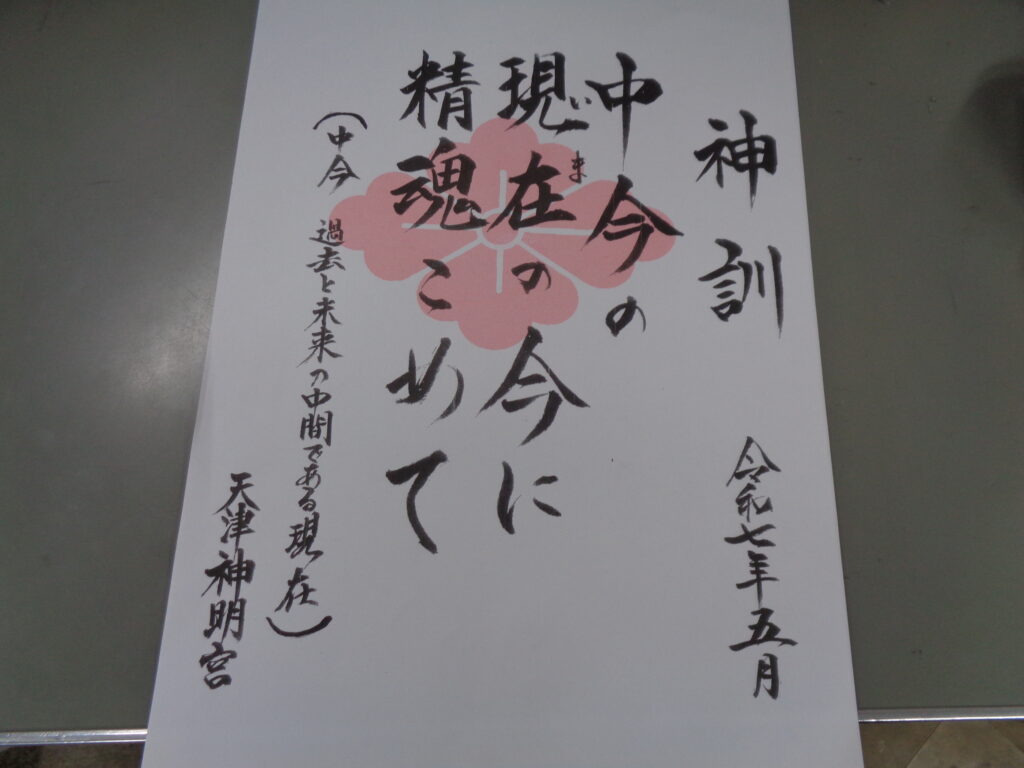 神訓
令和七年五月
中今の
現在の今に
いま
精魂こめて
（中今 過去と未来の中間である現在）
天津神明宮